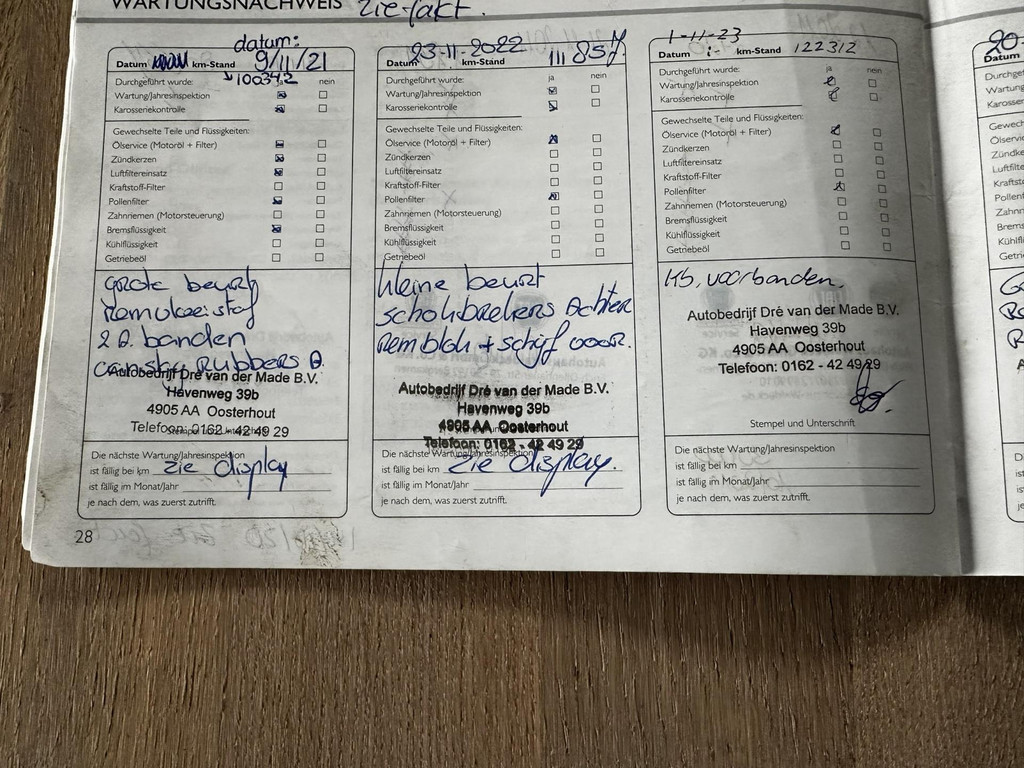 WARTUNGSNACHWEIS zie fakt.
datum:
Datum km-Stand 9/11/21
100342
Durchgeführt wurde: ja nein
Wartung/Jahresinspektion
Karosseriekontrolle
Gewechselte Teile und Flüssigkeiten:
Ölservice (Motoröl + Filter)
Zündkerzen
Luftfiltereinsatz
Kraftstoff-Filter
Pollenfilter
Zahnriemen (Motorsteuerung)
Bremsflüssigkeit
Kühlflüssigkeit
Getriebeöl
grote beurt
Remvloeistof
2 A. banden
Rubbers A.
Autobedrijf Dré van der Made B.V.
Havenweg 39b
4905 AA Oosterhout
Telefoon: 0162 - 42 49 29
Die nächste Wartung/Jahresinspektion
ist fällig bei km zie display
ist fällig im Monat/Jahr
je nach dem, was zuerst zutrifft.
28
23-11-2022
Datum km-Stand 111857
Durchgeführt wurde: ja nein
Wartung/Jahresinspektion
Karosseriekontrolle
Gewechselte Teile und Flüssigkeiten:
Ölservice (Motoröl + Filter)
Zündkerzen
Luftfiltereinsatz
Kraftstoff-Filter
Pollenfilter
Zahnriemen (Motorsteuerung)
Bremsflüssigkeit
Kühlflüssigkeit
Getriebeöl
kleine beurt
schokbrekers achter
Remblok + schijf voor.
Autobedrijf Dré van der Made B.V.
Havenweg 39b
4905 AA Oosterhout
Telefoon: 0162 - 42 49 29
Die nächste Wartung/Jahresinspektion
ist fällig bei km zie display.
ist fällig im Monat/Jahr
je nach dem, was zuerst zutrifft.
1-11-23
Datum km-Stand 122312
Durchgeführt wurde: ja nein
Wartung/Jahresinspektion
Karosseriekontrolle
Gewechselte Teile und Flüssigkeiten:
Ölservice (Motoröl + Filter)
Zündkerzen
Luftfiltereinsatz
Kraftstoff-Filter
Pollenfilter
Zahnriemen (Motorsteuerung)
Bremsflüssigkeit
Kühlflüssigkeit
Getriebeöl
KB, voorbanden.
Autobedrijf Dré van der Made B.V.
Havenweg 39b
4905 AA Oosterhout
Telefoon: 0162 - 42 49 29
Stempel und Unterschrift
Die nächste Wartung/Jahresinspektion
ist fällig bei km
ist fällig im Monat/Jahr
je nach dem, was zuerst zutrifft.
20-
Datum